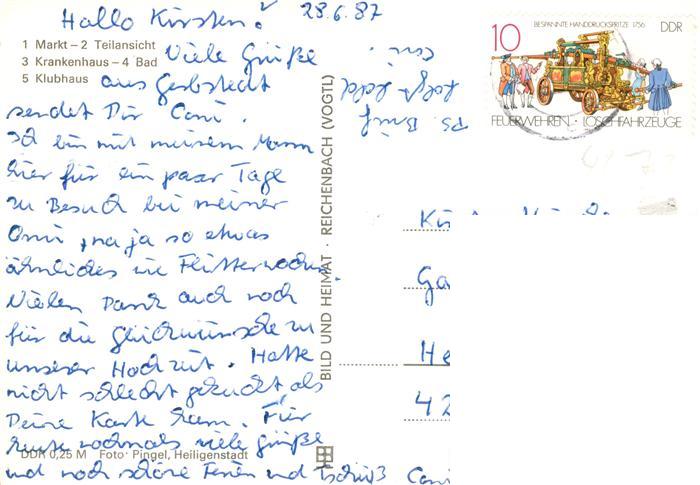 Hallo Kirsten! 28.6.87
1 Markt – 2 Teilansicht
3 Krankenhaus – 4 Bad
5 Klubhaus
Viele Grüße
aus Gerbstedt
sendet Dir Coni.
Ich bin mit meinem Mann
hier für ein paar Tage
zu Besuch bei meiner
Omi, na ja so etwas
ähnliches wie Flitterwochen.
Vielen Dank auch noch
für die Glückwünsche zu
unserer Hochzeit. Hatte
nicht schlecht geguckt als
Deine Karte kam. Für
heute nochmals viele Grüße
und noch schöne Ferien und Tschüß Coni
PS. Brief
folgt bald
Coni.
DDR 0,25 M Foto: Pingel, Heiligenstadt
BILD UND HEIMAT · REICHENBACH (VOGTL)
10 BESPANNTE HANDDRUCKSPRITZE 1756 DDR
FEUERWEHREN · LÖSCHFAHRZEUGE
Ki
Ga
He
42